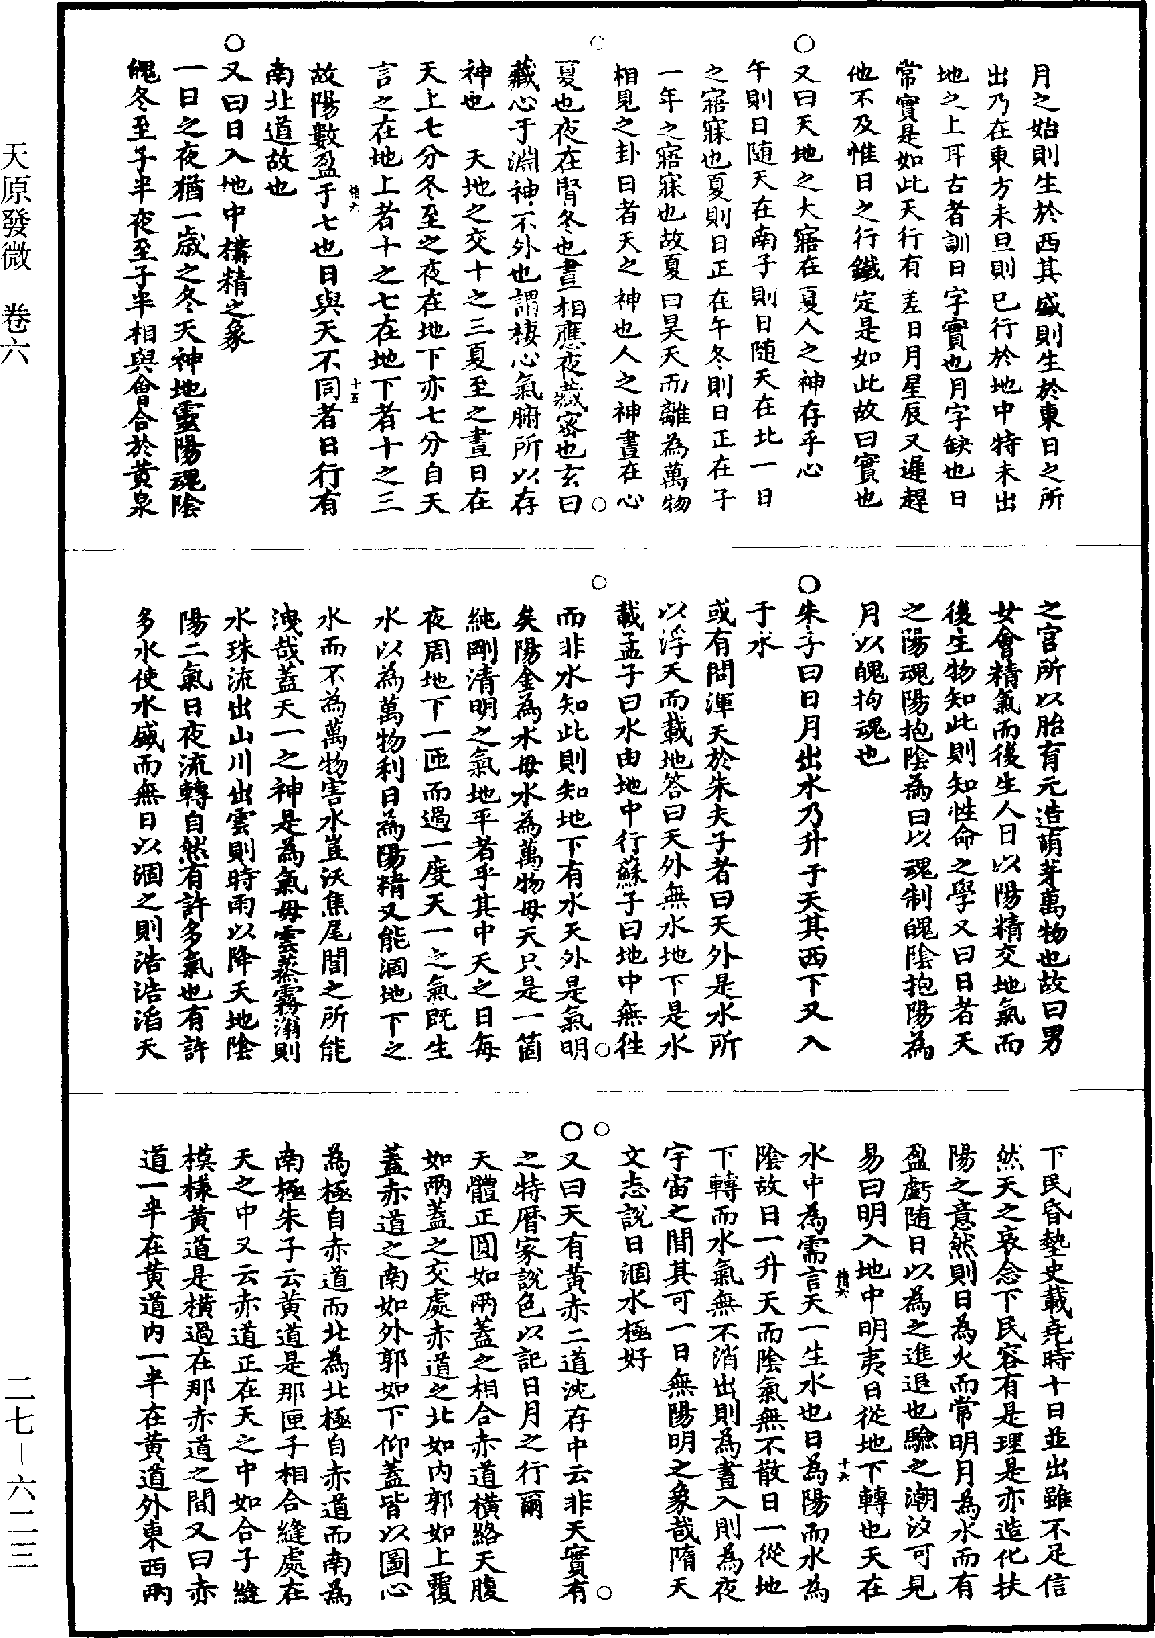 天原發微　卷六
二七－六二三
月之始則生於西其盛則生於東日之所
出乃在東方未旦則已行於地中特未出
地之上耳古者訓日字實也月字缺也日
常實是如此天行有差日月星辰又遲趕
他不及惟日之行鐵定是如此故曰實也
○又曰天地之大寤在夏人之神存乎心
午則日隨天在南子則日随天在北一日
之寤寐也夏則日正在午冬則日正在子
一年之寤寐也故夏曰昊天而離為萬物
相見之卦日者天之神也人之神晝在心
夏也夜在腎冬也晝相應夜藏密也玄曰
藏心于淵神不外也謂棲心氣腑所以存
神也　天地之交十之三夏至之晝日在
天上七分冬至之夜在地下亦七分自天
言之在地上者十之七在地下者十之三
故陽數盈于七也日與天不同者日行有
南北道故也
○又曰日入地中構精之象
一日之夜猶一歲之冬天神地靈陽魂陰
魄冬至子半夜至子半相與會合於黄泉
之宮所以胎育元造萌芽萬物也故曰男
女會精氣而後生人日以陽精交地氣而
後生物知此則知性命之學又曰日者天
之陽魂陽抱陰為日以魂制魄陰抱陽為
月以魄拘魂也
○朱子曰日月出水乃升于天其西下又入
于水
或有問渾天於朱夫子者曰天外是水所
以浮天而載地答曰天外無水地下是水
載孟子曰水由地中行蘇子曰地中無往
而非水知此則知地下有水天外是氣明
矣陽金為水母水為萬物母天只是一箇
純剛清明之氣地平者乎其中天之日每
夜周地下一匝而過一度天一之氣既生
水以為萬物利日為陽精又能涸地下之
水而不為萬物害水豈沃焦尾閭之所能
洩哉蓋天一之神是為氣母雲蒸霧滃則
水珠流出山川出雲則時雨以降天地陰
陽二氣日夜流轉自然有許多氣也有許
多水使水盛而無日以涸之則浩浩滔天
下民昏墊史載堯時十日並出雖不足信
然天之哀念下民容有是理是亦造化扶
陽之意然則日為火而常明月為水而有
盈虧随日以為之進退也驗之潮汐可見
易曰明入地中明夷日從地下轉也天在
水中為需言天一生水也日為陽而水為
陰故日一升天而陰氣無不散日一從地
下轉而水氣無不消出則為晝入則為夜
宇宙之間其可一日無陽明之象哉隋天
文志說日涸水極好
○又曰天有黄赤二道沈存中云非天實有
之特厝家說色以記日月之行爾
天體正圓如兩蓋之相合赤道橫絡天腹
如兩蓋之交處赤道之北如内郭如上覆
蓋赤道之南如外郭如下仰蓋皆以圖心
為極自赤道而北為北極自赤道而南為
南極朱子云黄道是那匣子相合縫處在
天之中又云赤道正在天之中如合子縫
模樣黄道是橫過在那赤道之間又曰赤
道一半在黄道内一半在黄道外東西兩
十五
十六